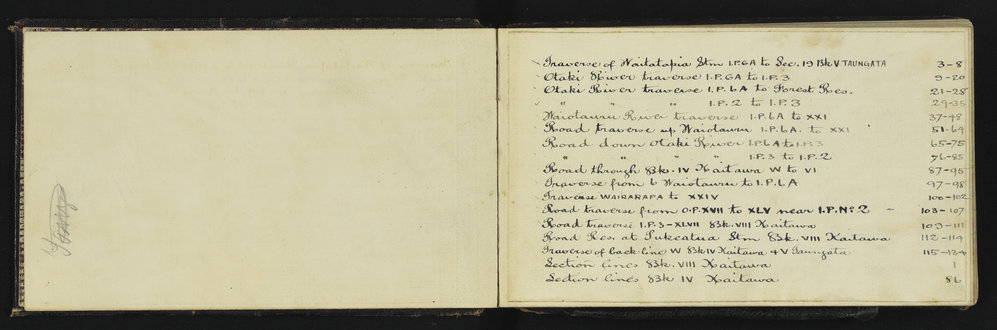 Traverse of Waitatapia Stm I.P.6A to Sec. 19 Bk V TAUNGATA 3-8
Otaki River traverse I.P. 6A to I.P. 3 9-20
Otaki River traverse I.P. 6A to Forest Res. 21-28
" " " I.P. 2 to I.P. 3 29-35
Waiotauru River traverse I.P. 6A to XXI 37-48
Road traverse up Waiotauru I.P. 6A. to XXI 51-64
Road down Otaki River I.P. 6A to I.P. 3 65-75
" " " " I.P. 3 to I.P. 2 76-85
Road through Bk. IV Kaitawa W to VI 87-95
Traverse from 6 Waiotauru to I.P. 6A 97-98
Traverse WAIRARAPA to XXIV 100-102
Road traverse from O.P. XVII to XLV near I.P. No 2 - 103-107
Road traverse I.P. 3-XLVII Bk. VIII Kaitawa 109-111
Road Res. at Pukeatua Stm Bk. VIII Kaitawa 112-114
Traverse of back line W Bk IV Kaitawa & V Taungata 115-124
Section lines Bk. VIII Kaitawa 1
Section lines Bk IV Kaitawa 86